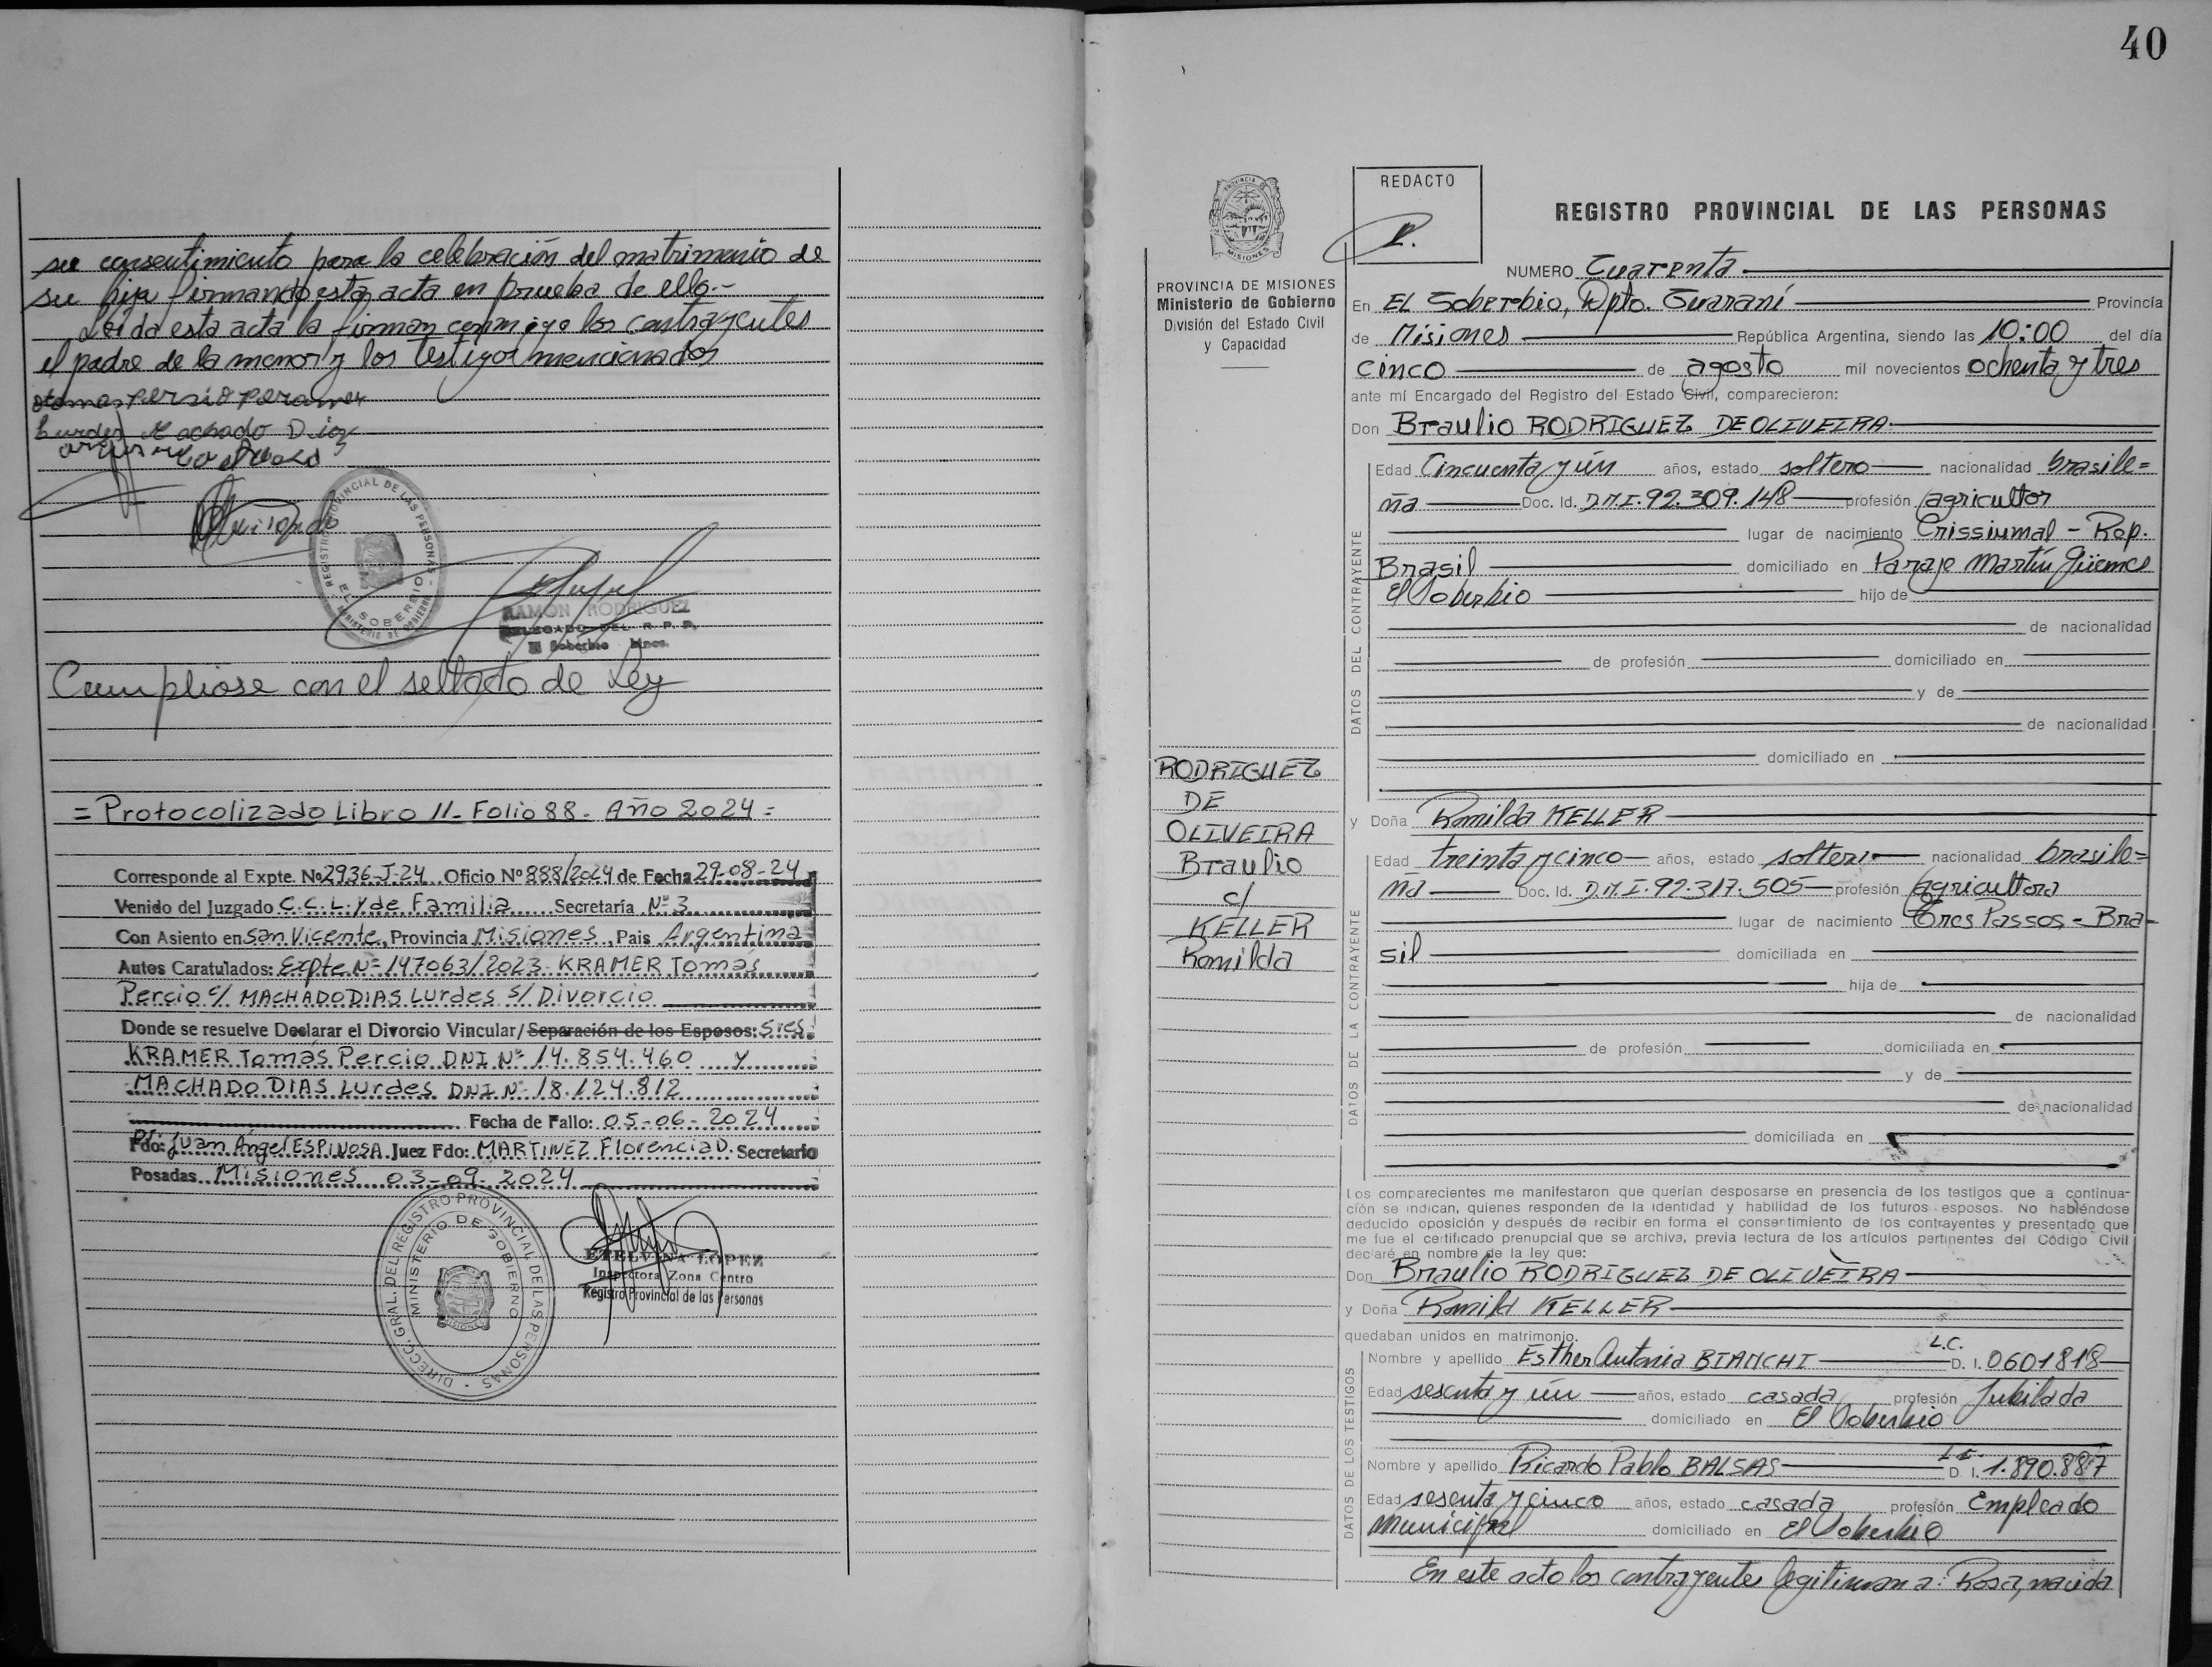 su consentimiento para la celebración del matrimonio de
su hija firmando esta acta en prueba de ello.-
Leida esta acta la firman conmigo los contrayentes
el padre de la menor y los testigos mencionados
Lurdes Machado Diaz
REGISTRO PROVINCIAL DE LAS PERSONAS
EL SOBERBIO
MINISTERIO DE GOBIERNO
RAMON RODRIGUEZ
DELEGADO DEL R. P. P.
El Soberbio Mnes.
Cumpliose con el sellado de Ley
= Protocolizado Libro 11- Folio 88- Año 2024 =
Corresponde al Expte. Nº 2936-J-24 Oficio Nº 888/2024 de Fecha 29-08-24
Venido del Juzgado C.C.L. y de Familia Secretaría Nº 3
Con Asiento en San Vicente, Provincia Misiones, Pais Argentina
Autos Caratulados: Expte Nº 147063/2023- KRAMER Tomás
Percio c/ MACHADO DIAS Lurdes s/ Divorcio
Donde se resuelve Declarar el Divorcio Vincular/Separación de los Esposos: Sres.
KRAMER Tomás Percio DNI Nº 14.854.460 y
MACHADO DIAS Lurdes DNI Nº 18.124.812
Fecha de Fallo: 05-06-2024
Fdo: Dr. Juan Ángel ESPINOSA Juez Fdo: MARTINEZ Florencia D. Secretario
Posadas Misiones 03-09-2024
DIRECC. GRAL. DEL REGISTRO PROVINCIAL DE LAS PERSONAS
MINISTERIO DE GOBIERNO
MISIONES
ETELVINA LOPEZ
Inspectora Zona Centro
Registro Provincial de las Personas
40
PROVINCIA DE MISIONES
Ministerio de Gobierno
División del Estado Civil
y Capacidad
RODRIGUEZ
DE
OLIVEIRA
Braulio
c/
KELLER
Romilda
REDACTO
REGISTRO PROVINCIAL DE LAS PERSONAS
NUMERO Cuarenta
En EL Soberbio, Dpto. Guaraní Provincia
de Misiones República Argentina, siendo las 10:00 del día
cinco de agosto mil novecientos ochenta y tres
ante mí Encargado del Registro del Estado Civil, comparecieron:
Don Braulio RODRIGUEZ DE OLIVEIRA
DATOS DEL CONTRAYENTE
Edad Cincuenta y ún años, estado soltero nacionalidad brasile=
ña Doc. Id. D.N.I. 92.309.148 profesión agricultor
lugar de nacimiento Crissiumal - Rep.
Brasil domiciliado en Paraje Martín Güemes
El Soberbio hijo de
de nacionalidad
de profesión domiciliado en
y de
de nacionalidad
domiciliado en
y Doña Romilda KELLER
DATOS DE LA CONTRAYENTE
Edad treinta y cinco años, estado soltera nacionalidad brasile=
ña Doc. Id. D.N.I. 92.317.505 profesión agricultora
lugar de nacimiento Tres Passos - Bra-
sil domiciliada en
hija de
de nacionalidad
de profesión domiciliada en
y de
de nacionalidad
domiciliada en
Los comparecientes me manifestaron que querían desposarse en presencia de los testigos que a continua-
ción se indican, quienes responden de la identidad y habilidad de los futuros esposos. No habiéndose
deducido oposición y después de recibir en forma el consentimiento de los contrayentes y presentado que
me fue el certificado prenupcial que se archiva, previa lectura de los artículos pertinentes del Código Civil
declaré en nombre de la ley que:
Don Braulio RODRIGUEZ DE OLIVEIRA
y Doña Romild KELLER
quedaban unidos en matrimonio.
DATOS DE LOS TESTIGOS
Nombre y apellido Esther Antonia BIANCHI L.C. D. I. 0601818
Edad sesenta y ún años, estado casada profesión Jubilada
domiciliado en El Soberbio
Nombre y apellido Ricardo Pablo BALSAS L.E. D. I. 1.890.887
Edad sesenta y cinco años, estado casada profesión Empleado
municipal domiciliado en El Soberbio
En este acto los contrayentes legitiman a: Rosa, nacida